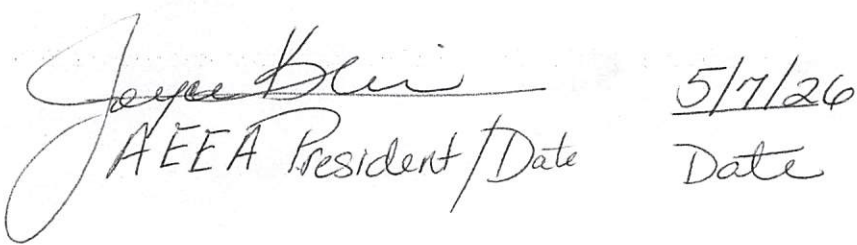 Joyce 5/7/26
AEEA President/Date Date